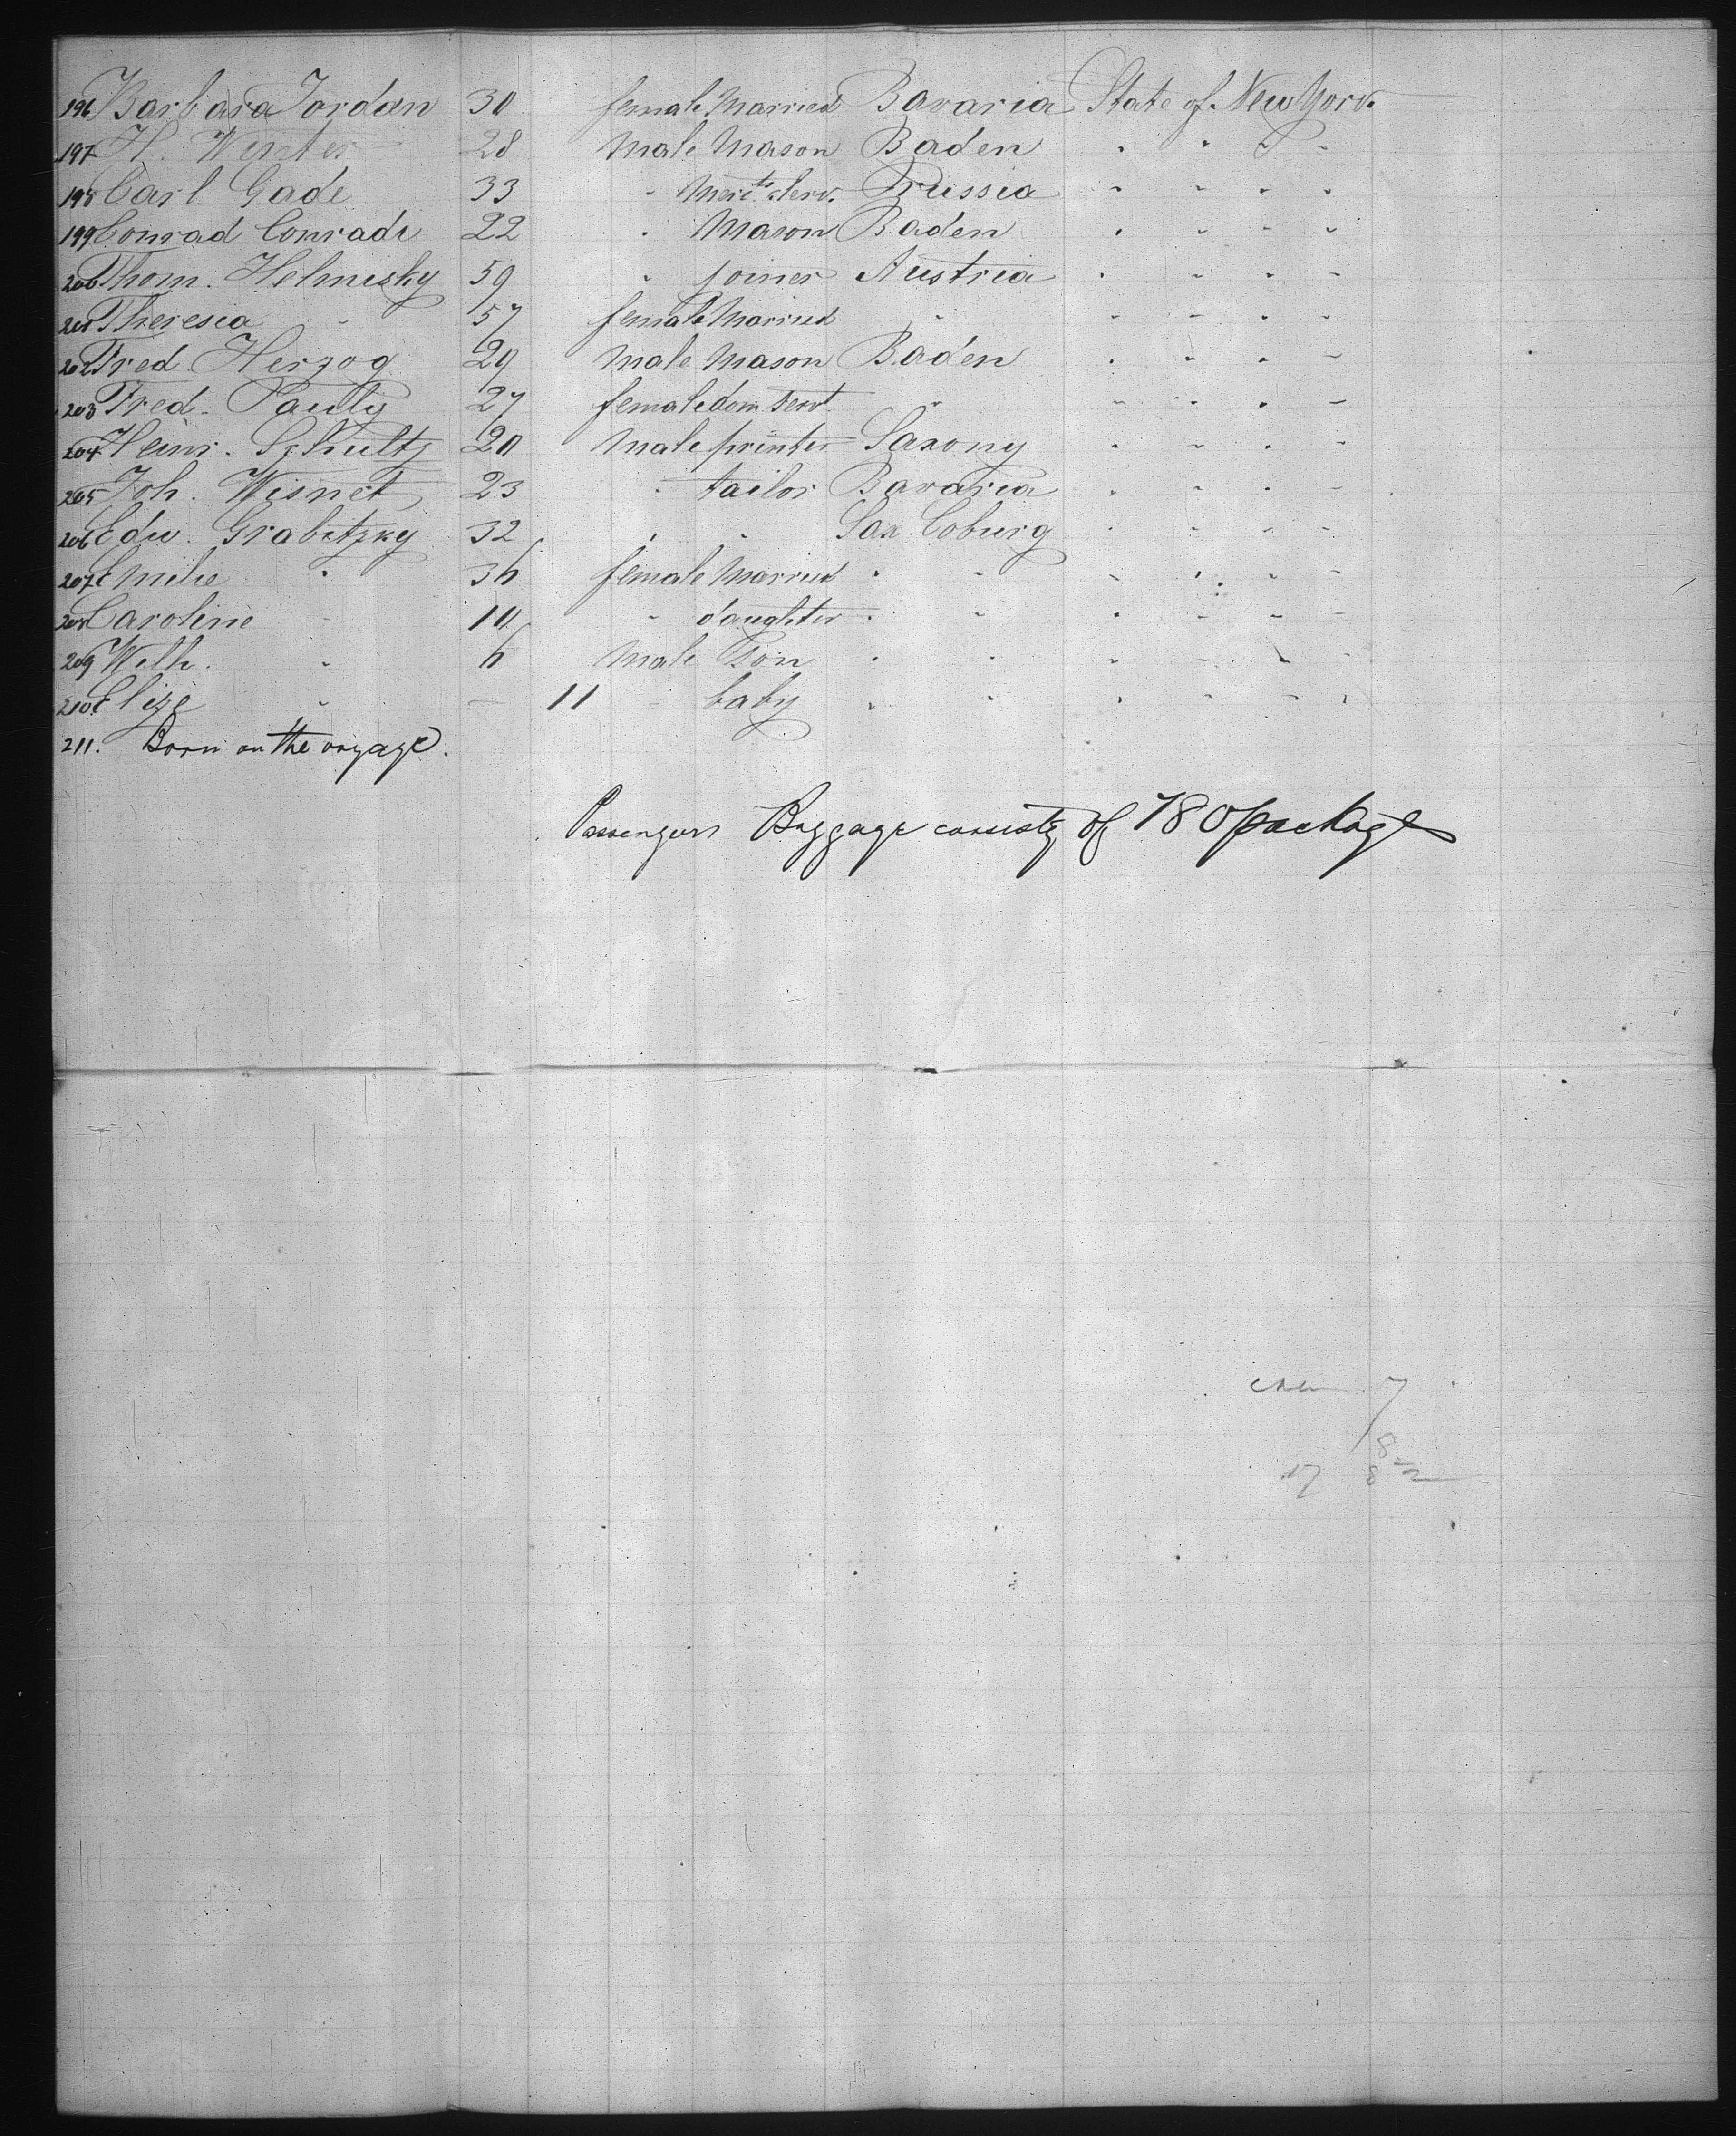 196 Barbara Jordan 30 female Married Bavaria State of New York
197 H. Winter 28 Male Mason Baden " " " "
198 Carl Gade 33 " Mercts clerk. Prussia " " " "
199 Conrad Conradi 22 " Mason Baden " " " "
200 Thom. Helmisky 59 " joiner Austria " " " "
201 Theresia " 57 female Married " " " " "
202 Fred Herzog 29 Male Mason Baden " " " "
203 Fred. Pauly 27 female dom. servt. " " " " "
204 Heinr. Schultz 20 Male printer Saxony " " " "
205 Joh. Wisnet 23 " tailor Bavaria " " " "
206 Edw. Grabitzky 32 " " Sax. Coburg " " " "
207 Emilie " 36 female Married " " " " " "
208 Caroline " 10 " daughter " " " " " "
209 Wilh. " 6 Male Son " " " " " "
210 Elize " — 11 " baby " " " " " "
211. Born on the voyage.
Passengers Baggage consistg of 180 packages
7
8
17 8